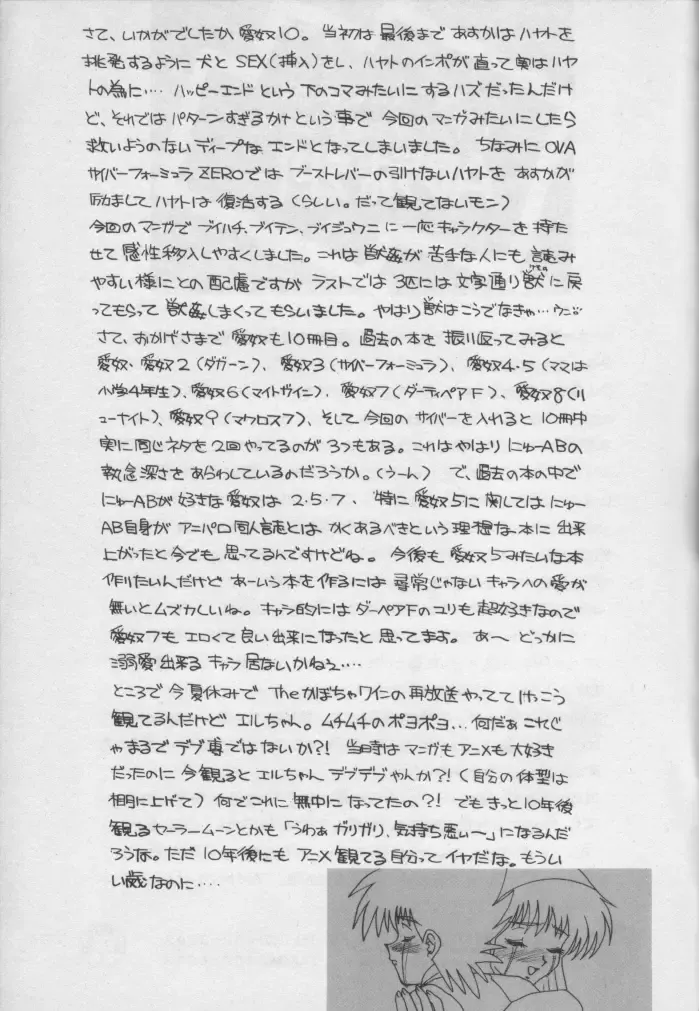 さて、いかがでしたか愛奴10。当初は最後まであすかはハヤトを
挑発するように犬とSEX(挿入)をし、ハヤトのインポが直って実はハヤ
トの為に‥‥ハッピーエンドという下のコマみたいにするハズだったんだけ
ど、それではパターンすぎるかけという事で今回のマンガみたいにしたら
救いようのないディープなエンドとなってしまいました。ちなみにOVA
サイバーフォーミュラZEROではブーストレバーの引けないハヤトをあすかが
励ましてハヤトは復活する(らしい。だって観てないモン)
今回のマンガでブイハチ、ブイテン、ブイジュウニに一応キャラクターを持た
せて感性移入しやすくしました。これは獣姦が苦手な人にも読み
やすい様にとの配慮ですがラストでは3匹には文字通り獣に戻
ってもらって獣姦しまくってもらいました。やはり獣はこうでなきゃ…
さて、おかげさまで愛奴も10冊目。過去の本を振り返ってみると
愛奴・愛奴2(ダガーン)、愛奴3(サイバーフォーミュラ)、愛奴4・5(ママは
小学4年生)、愛奴6(マイトガイン)、愛奴7(ダーティペアF)、愛奴8(リ
ューナイト)、愛奴9(マクロス7)、そして今回のサイバーを入れると10冊中
実に同じネタを2回やってるのが3つもある。これはやはりにゅーABの
執念深さをあらわしているのだろうか。(うーん)で、過去の本の中で
にゅーABが好きな愛奴は2・5・7、特に愛奴5に関してはにゅー
AB自身がアニパロ同人誌とはかくあるべきという理想な本に出来
上がったと今でも思ってるんですけどね。今後も愛奴5みたいな本
作りたいんだけどあーいう本を作るには尋常じゃないキャラへの愛が
無いとムズカしいね。キャラ的にはダーペアFのユリも超好きなので
愛奴7もエロくて良い出来になったと思ってます。あ〜どっかに
溺愛出来るキャラ居ないかねぇ‥‥
ところで今夏休みでTheかぼちゃワインの再放送やっててけっこう
観てるんだけどエルちゃん。ムチムチのポヨポヨ…何だぁこれじ
ゃまるでデブ専ではないか?!当時はマンガもアニメも大好き
だったのに今観るとエルちゃんデブデブやんか?!(自分の体型は
棚に上げて)何でこれに無中になってたの?!でもきっと10年後
観るセーラームーンとかも「うわぁガリガリ、気持ち悪ぃ〜」になるんだ
ろうな。ただ10年後にもアニメ観てる自分ってイヤだな。もうい
い歳なのに‥‥